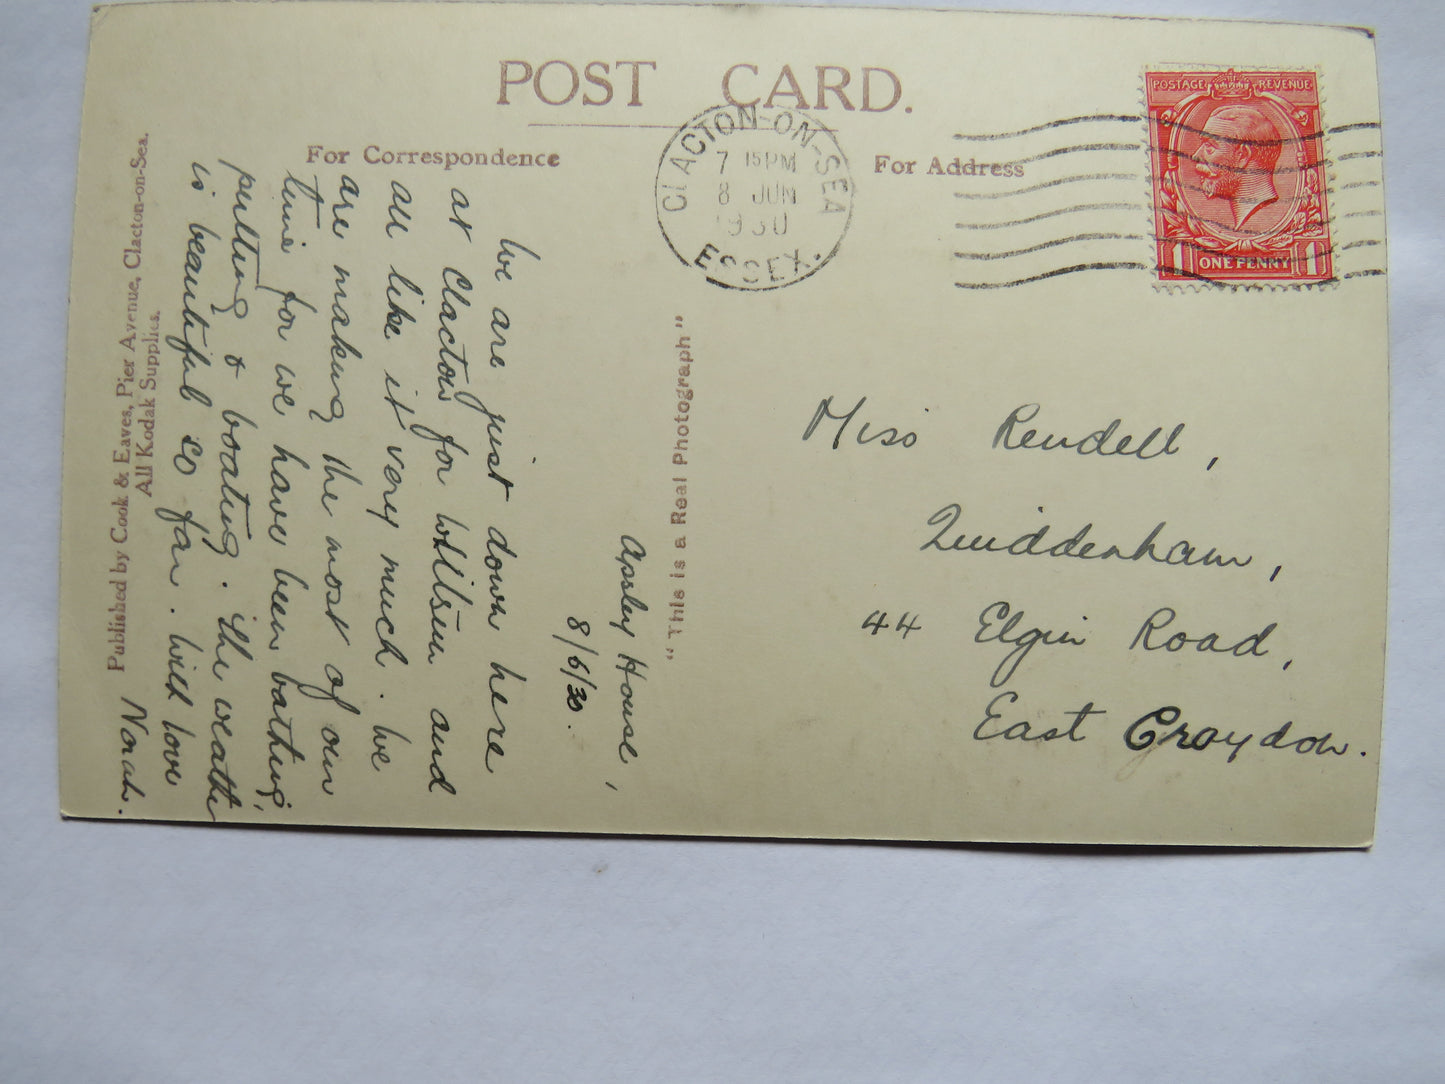 POST CARD.
For Correspondence
For Address
CLACTON-ON-SEA
7 15 PM
8 JUN
1930
ESSEX.
POSTAGE REVENUE
1 ONE PENNY 1
Published by Cook & Eaves, Pier Avenue, Clacton-on-Sea.
All Kodak Supplies.
"This is a Real Photograph"
Apsley House,
8/6/30.
We are just down here
at Clacton for Whitsun and
all like it very much. We
are making the most of our
time for we have been bathing,
putting & boating. The weather
is beautiful so far. With love
Norah.
Miss Rendell,
Quiddenham,
44 Elgin Road,
East Croydon.